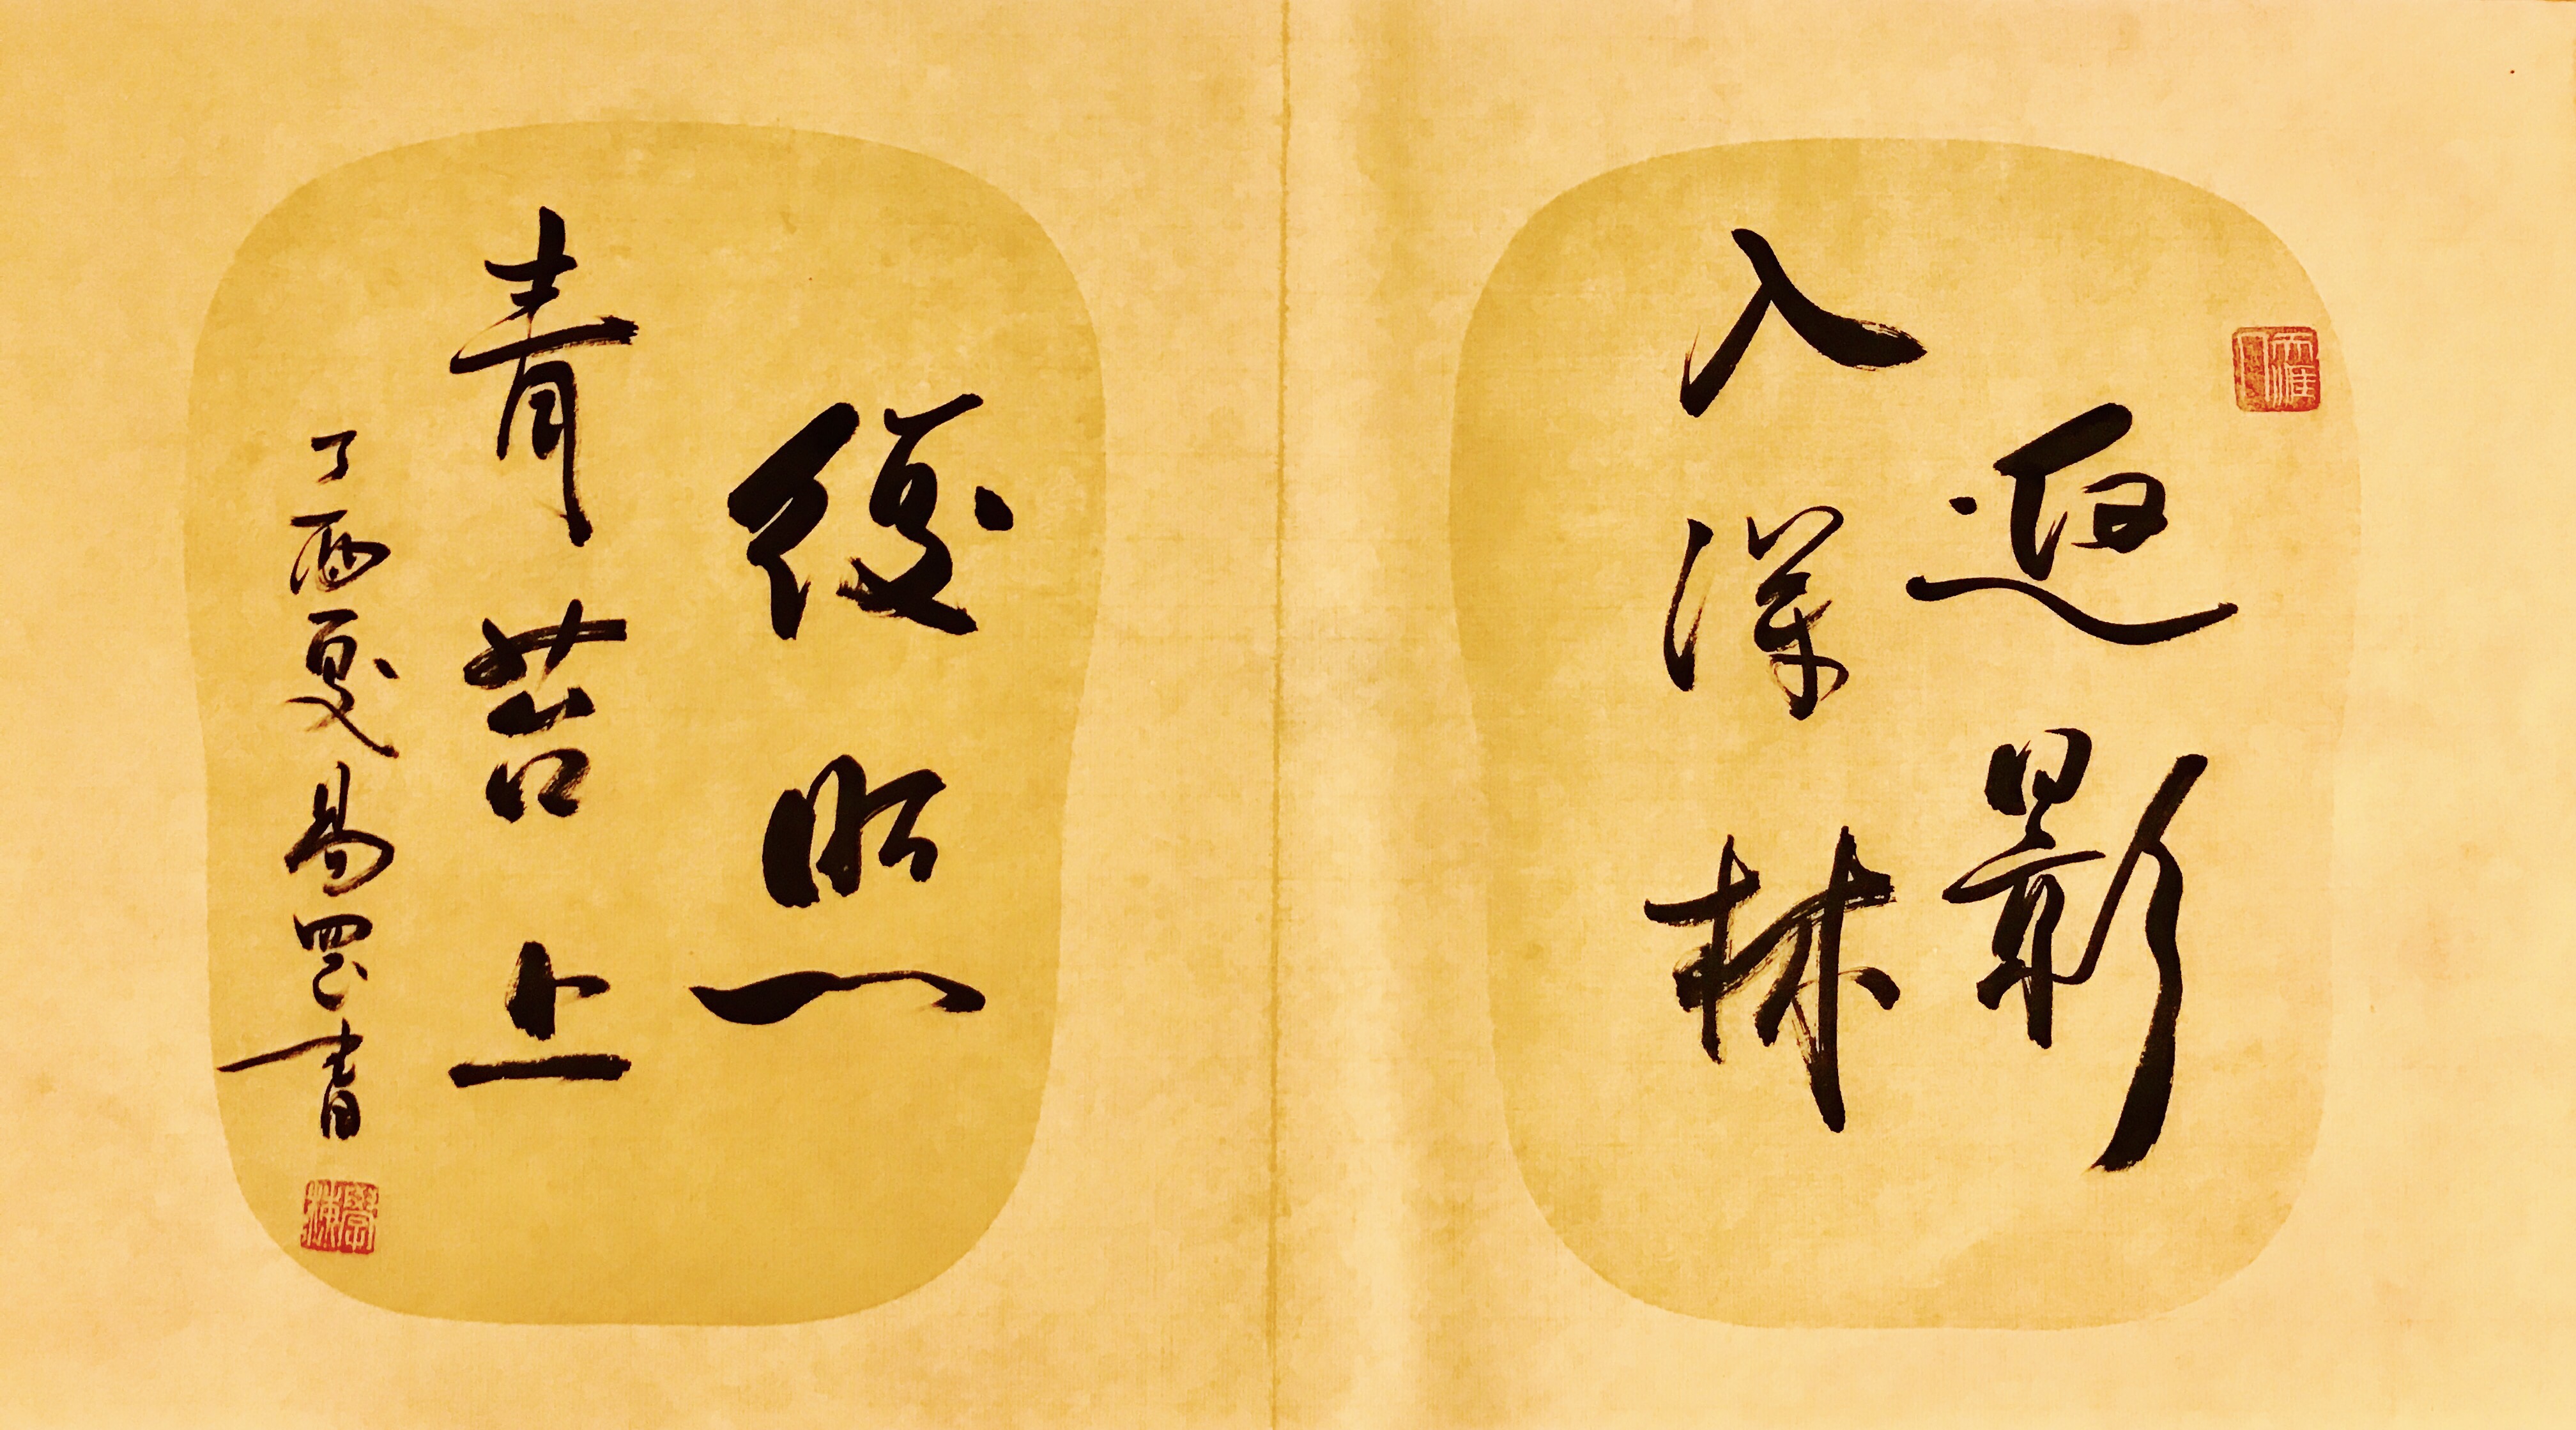 返影
入深林
復照
青苔上
丁酉夏易書